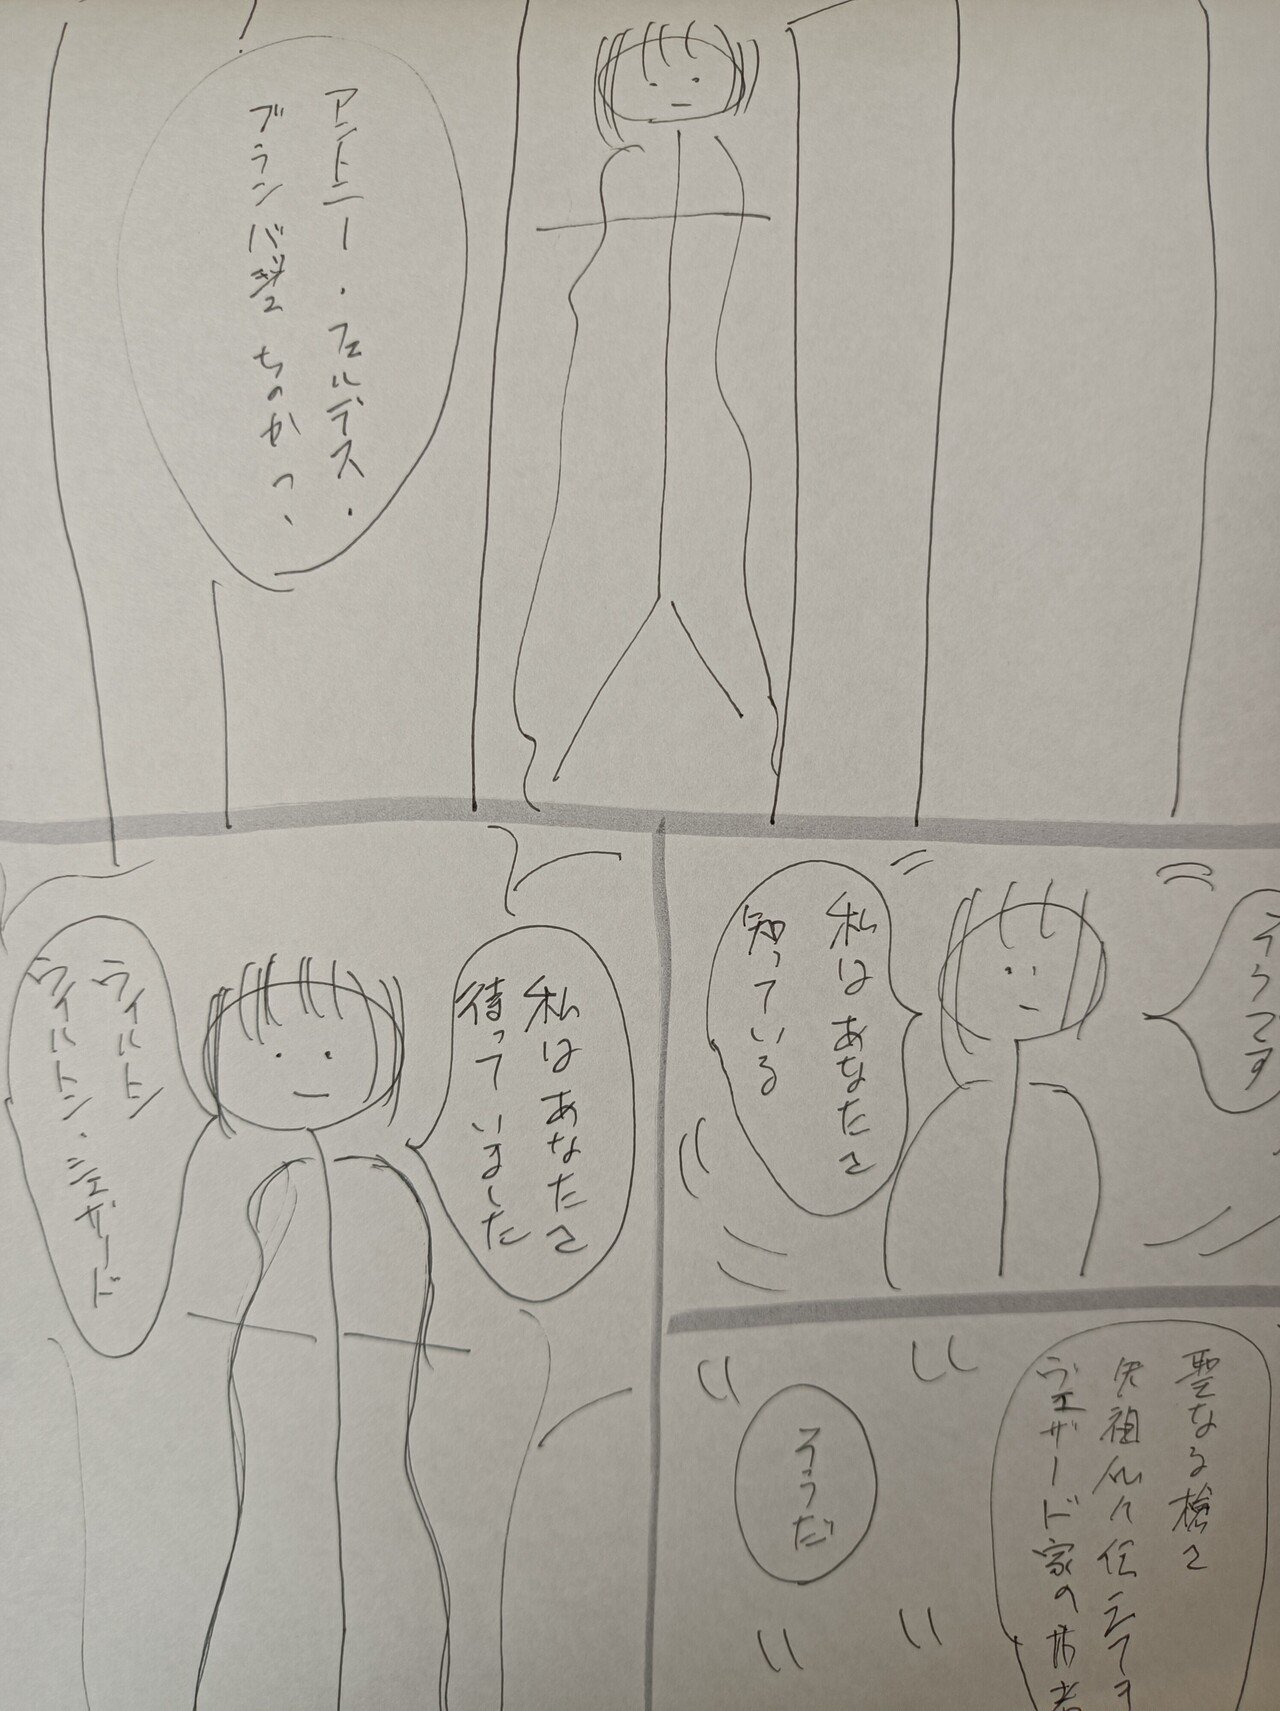 アントニー・フェルデス・
ブランバ
ちのかっ、
そうです
私はあなたを
知っている
聖なる槍を
先祖代々伝えてき
ヴェザード家の
そうだ
私はあなたを
待っていました
ウィルトン
ウィルトン・シェザード